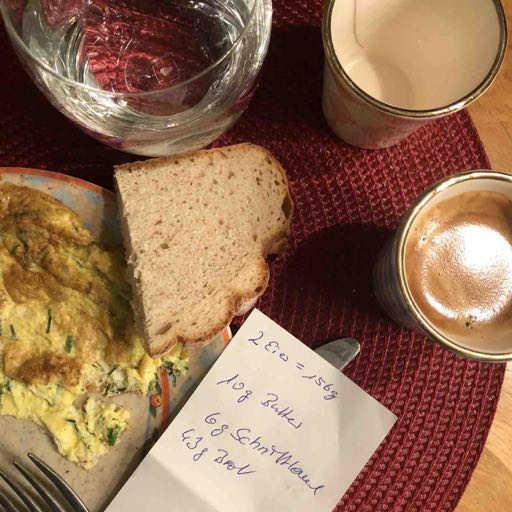 2 Eier = 156g
10g Butter
6g Schnittlauch
43g Brot